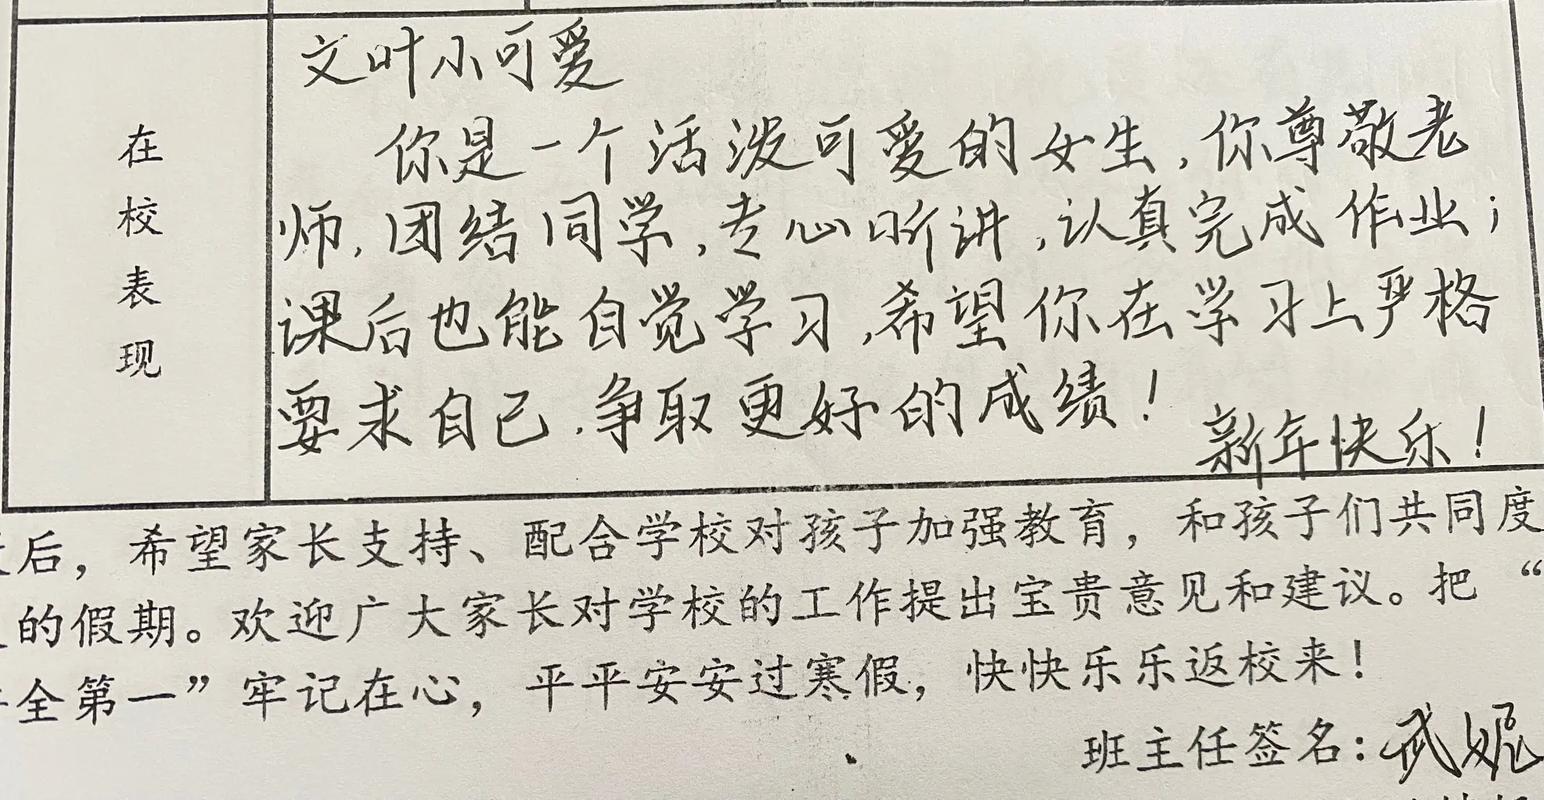 在校表现
文叶小可爱
你是一个活泼可爱的女生，你尊敬老
师，团结同学，专心听讲，认真完成作业；
课后也能自觉学习，希望你在学习上严格
要求自己，争取更好的成绩！
新年快乐！
后，希望家长支持、配合学校对孩子加强教育，和孩子们共同度
的假期。欢迎广大家长对学校的工作提出宝贵意见和建议。把“
全第一”牢记在心，平平安安过寒假，快快乐乐返校来！
班主任签名：武妮